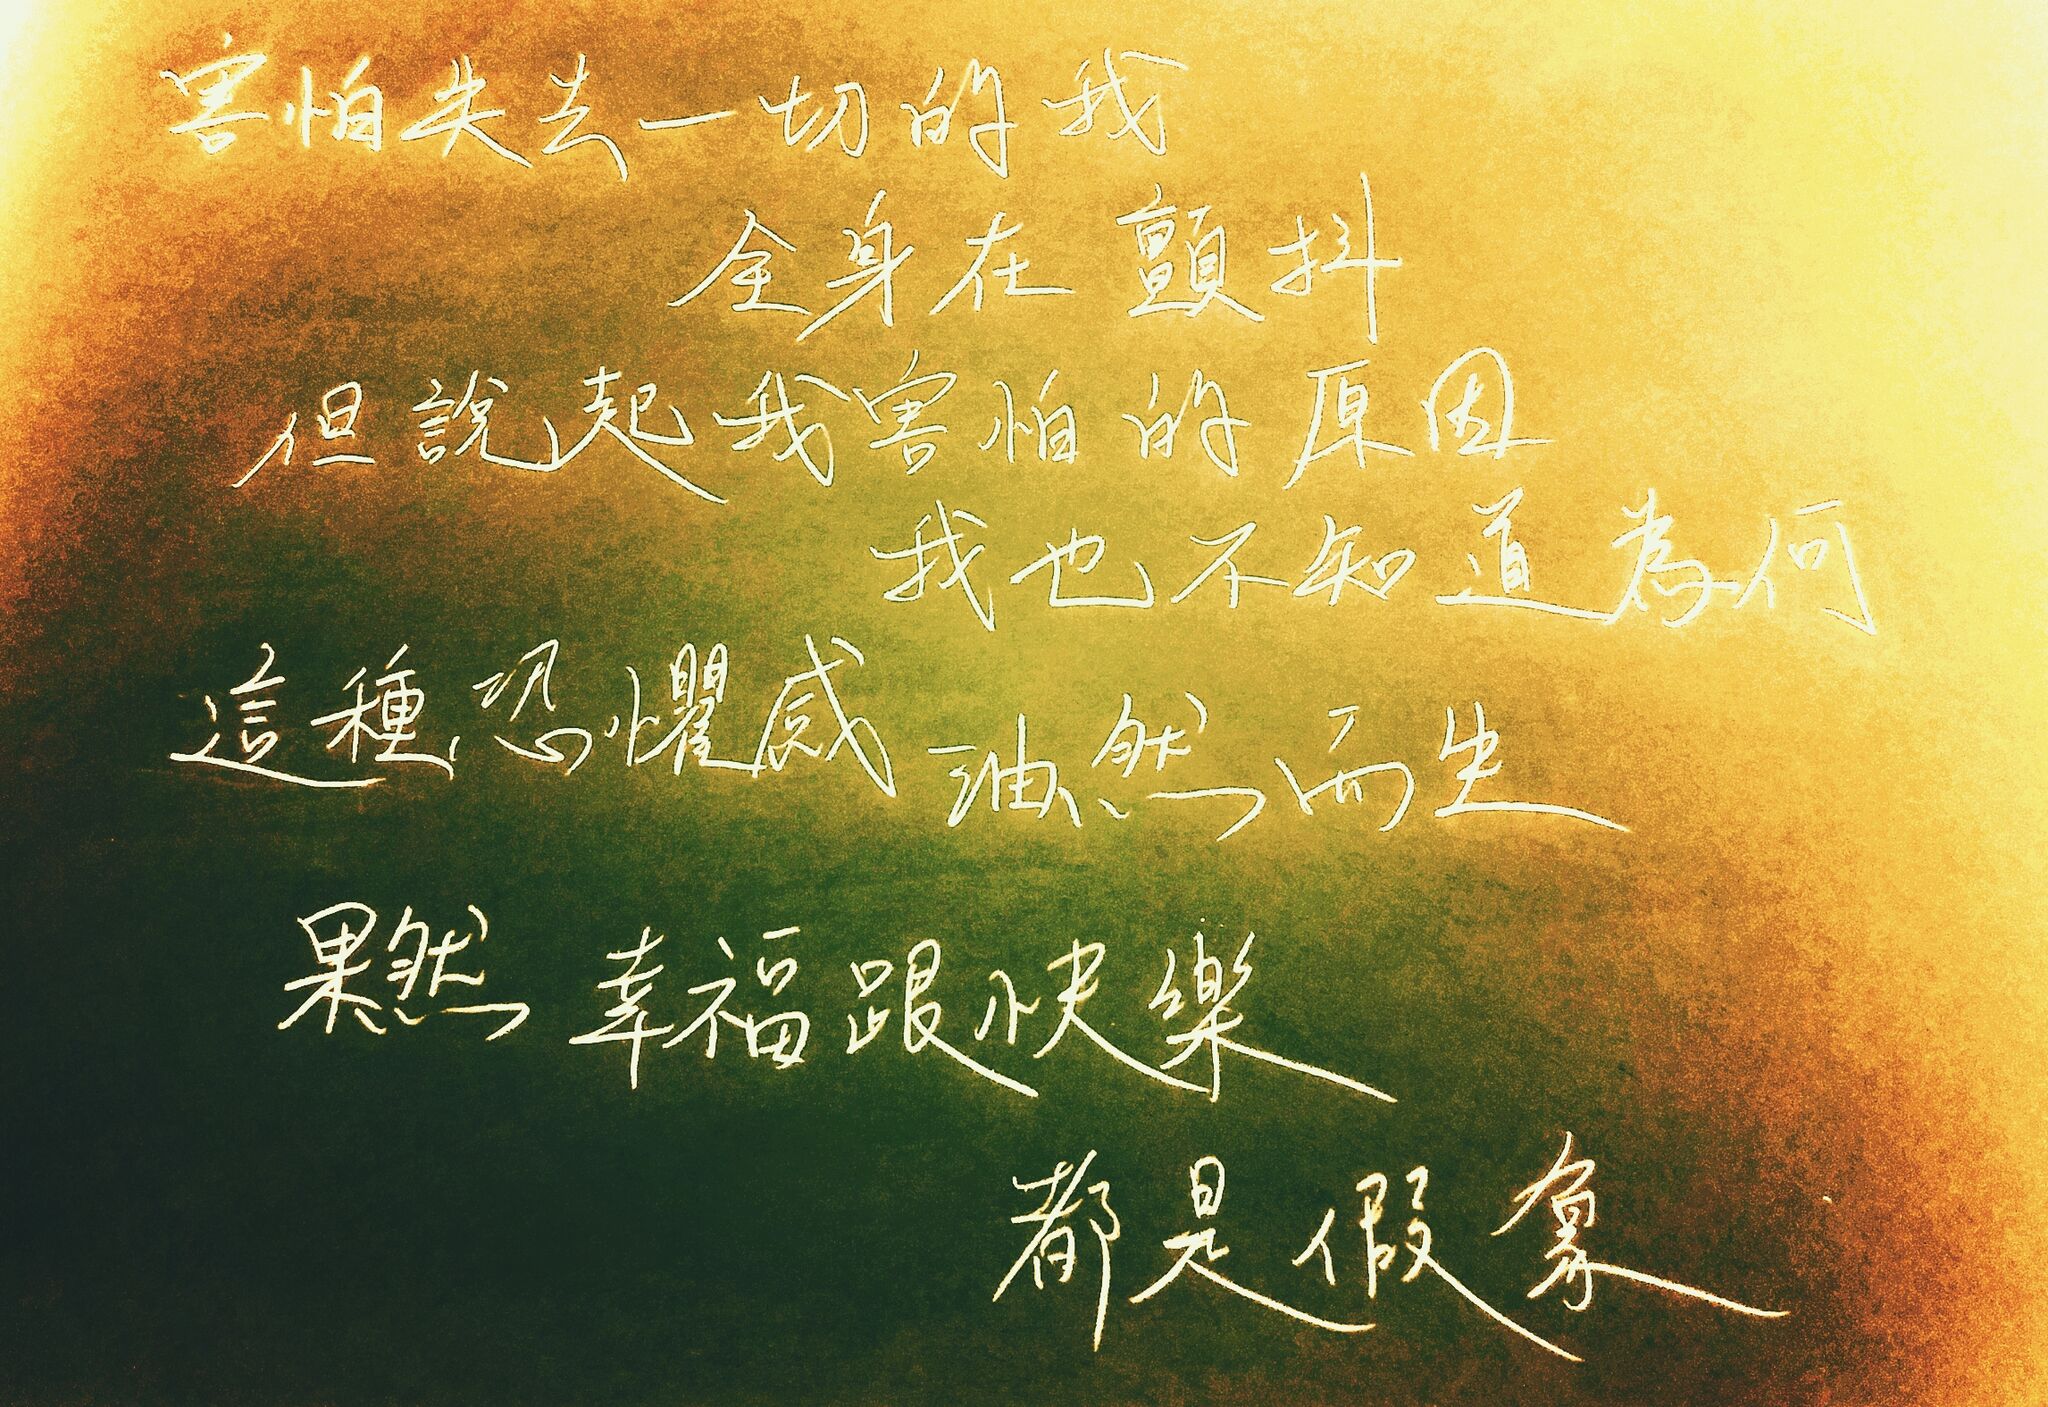 害怕失去一切的我
全身在顫抖
但說起我害怕的原因
我也不知道為何
這種恐懼感 油然而生
果然 幸福跟快樂
都是假象